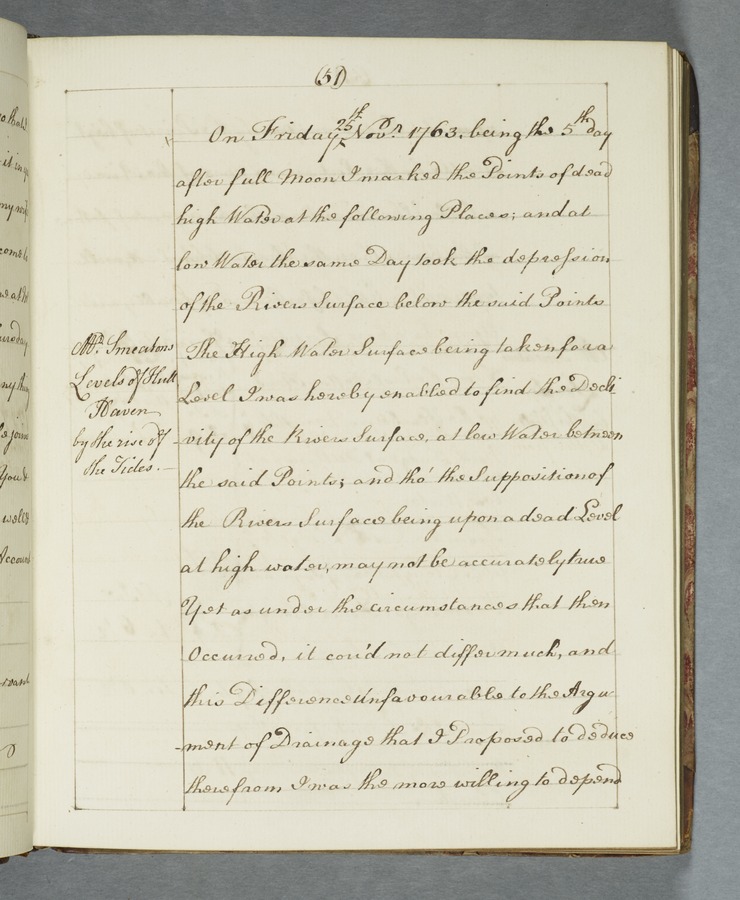 (51)
On Friday 25th Novr. 1763. being the 5th day
after full Moon I marked the Points of dead
high Water at the following Places; and at
low Water the same Day took the depression
of the Rivers Surface below the said Points
The High Water Surface being taken for a
Level I was hereby enabled to find the Decli-
-vity of the Rivers Surface, at low Water between
the said Points; and tho' the Supposition of
the Rivers Surface being upon a dead Level
at high water, may not be accurately true
Yet as under the circumstances that then
Occurred, it cou'd not differ much, and
this Difference Unfavourable to the Argu-
-ment of Drainage that I Proposed to deduce
therefrom I was the more willing to depend
Mr. Smeatons
Levels of Hull
Haven
by the rise of
the Tides.